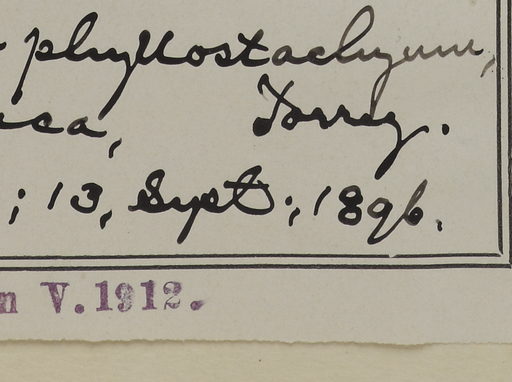 phyllostachyum,
Torrey.
; 13, Sept:, 1896.
V.1912.